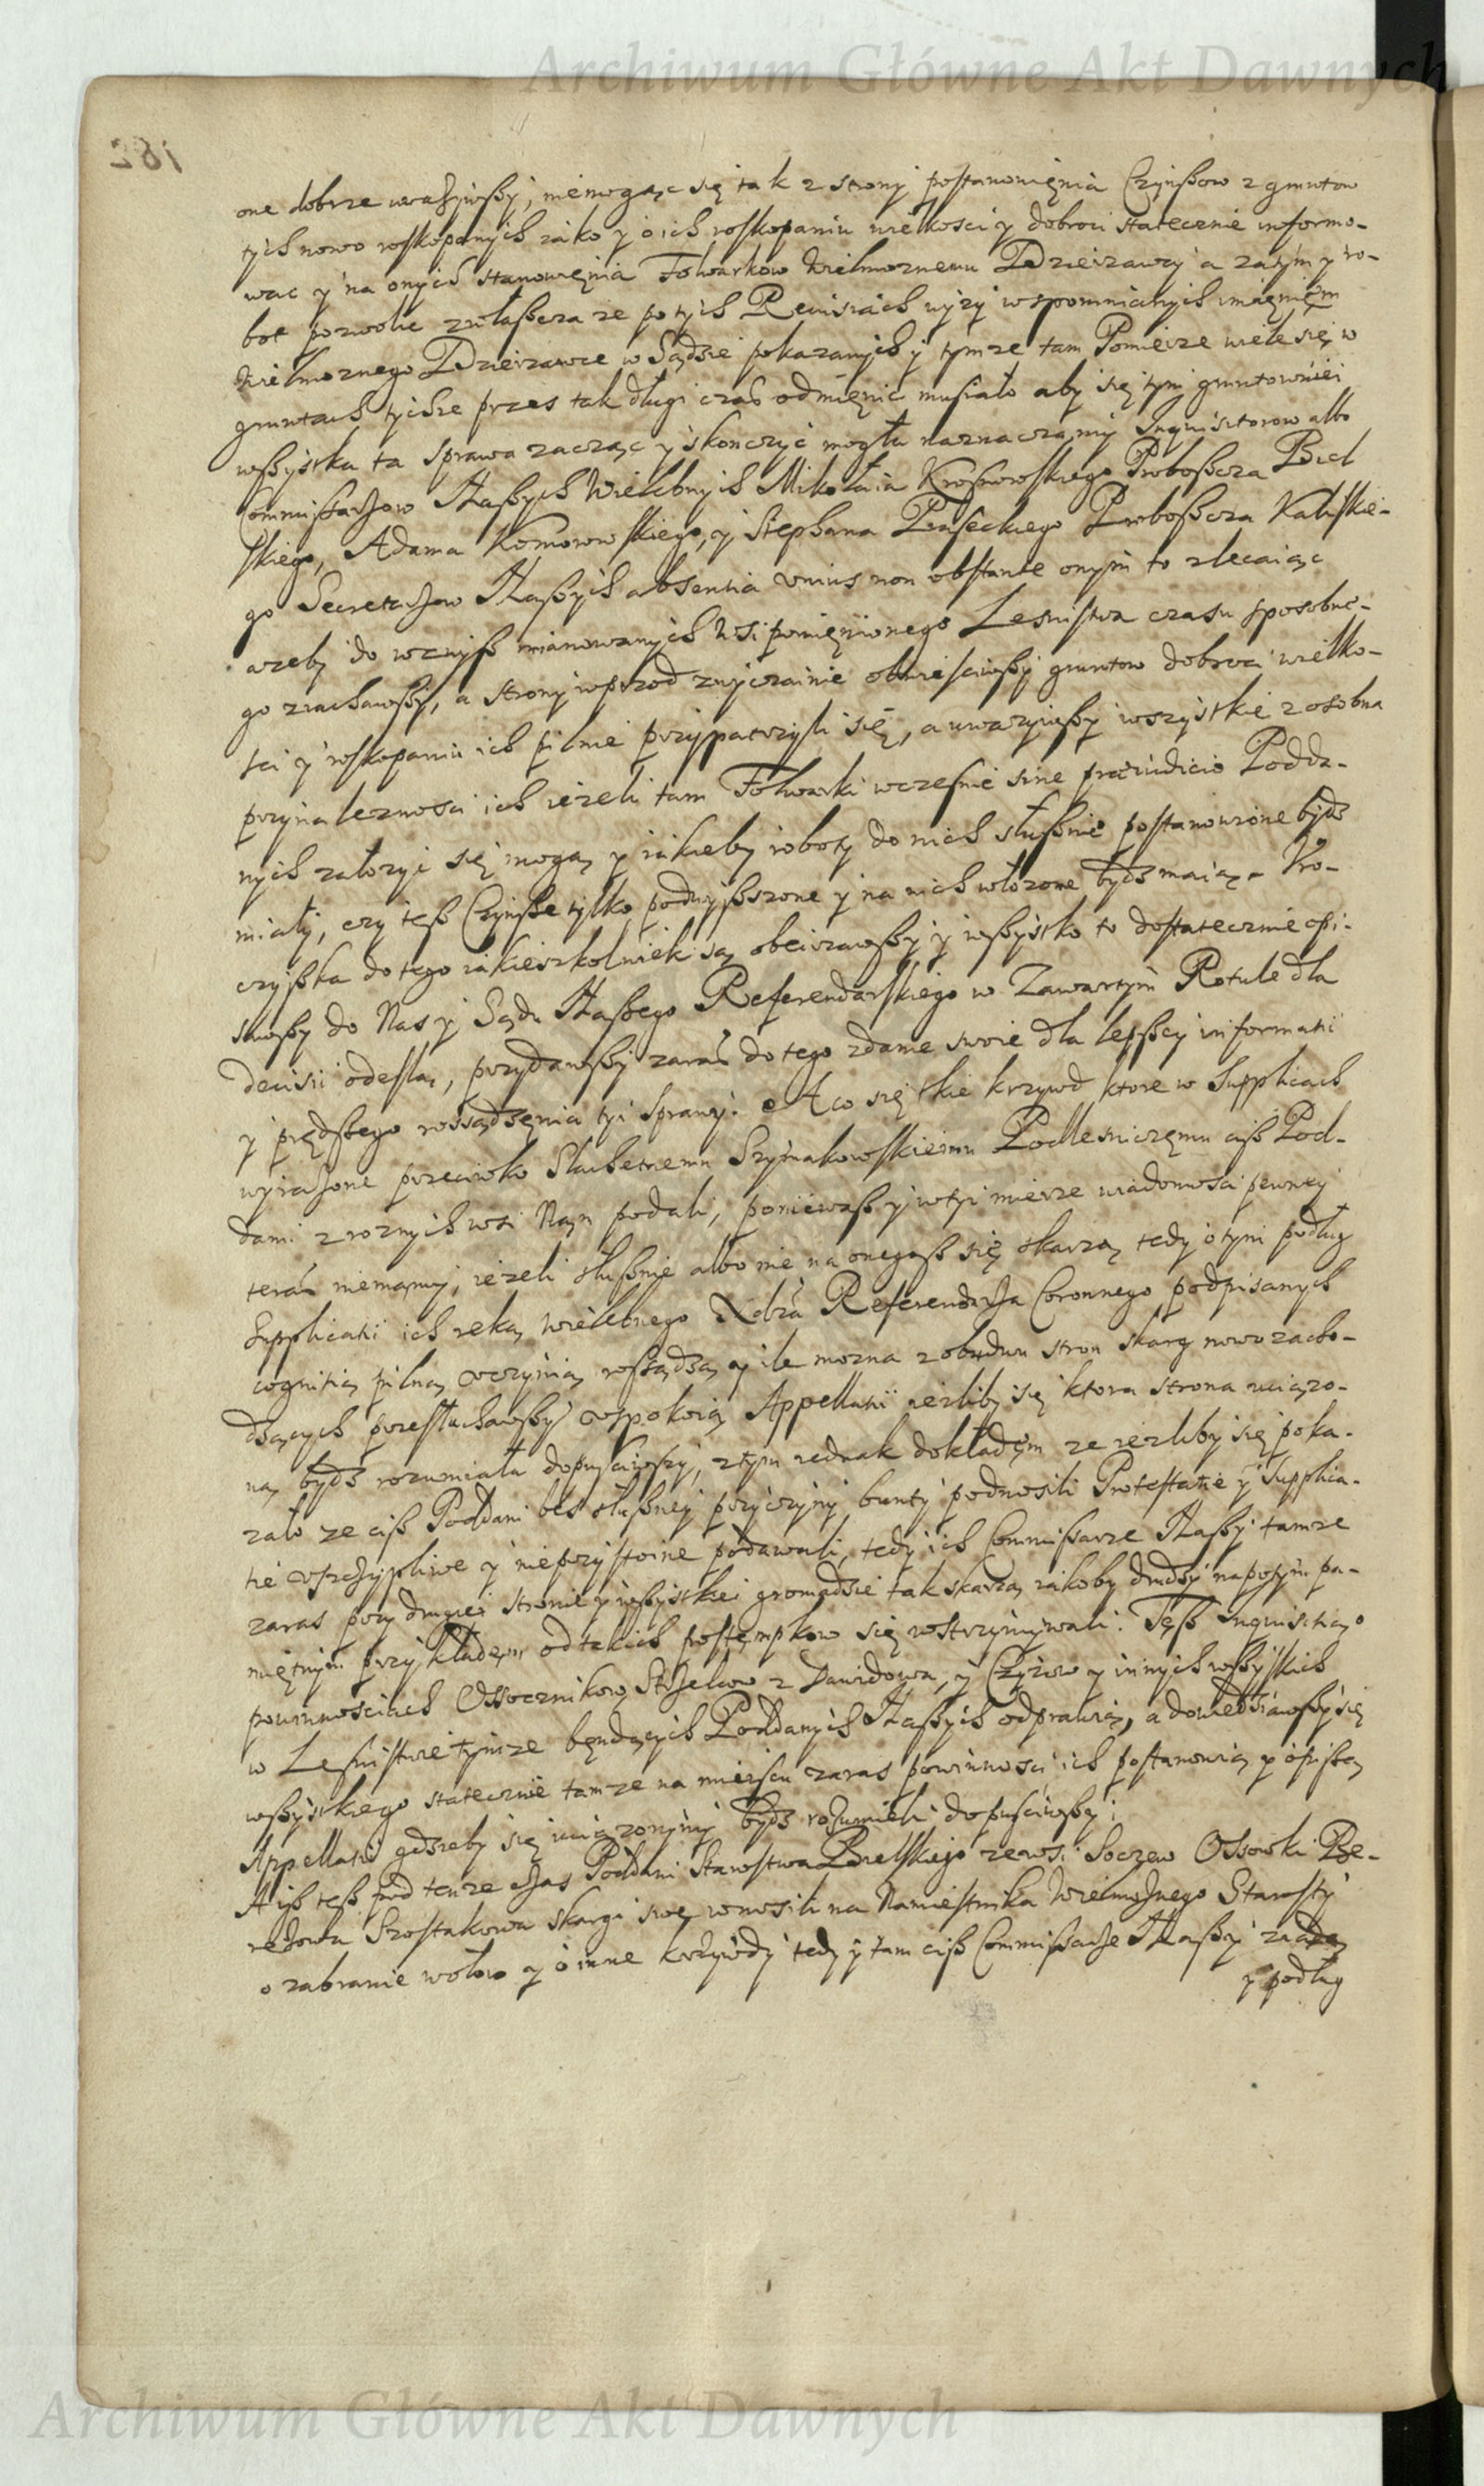 Archiwum Główne Akt Dawnych
182
one dobrze uważywszy, niemogąc się tak z strony postanowięnia Czynszow z gruntow
tych nowo roskopanych iako y o ich roskopaniu wielkosci y dobroci statecznie informo-
wac y na onych stanowięnia Folwarkow Wielmoznemu Dzierzawcy a zatym y ro-
bot pozwolic zwłaszcza ze po tych Reuisiach wyzy wspomnianych imięnięm
Wielmoznego Dzierzawce w Sądzie pokazanych y tymze tam Pomierze wiele się w
gruntach tychze przes tak długi czas odmięnic musiało aby się tym gruntowniei
wszystka ta sprawa zacząc y skonczyć mogła naznaczamy Inquisitorow albo
Commissarzow Naszych Wielebnych Mikołaia Krosnowskiego Proboszcza Biel
skiego, Adama Komorowskiego, y Stephana Piaseckiego Proboszcza Kaliskie-
go Secretarzow Naszych absentia vnius non obstante onym to zlecaiąc
azeby do wzwysz mianowanych Wsi pomięnionego Lesnistwa czasu sposobne-
go ziachawszy, a strony wprzod zwyczainie obwiesciwszy gruntow dobroci wielko-
sci y roskopaniu ich pilnie przypatrzyli się, a uwazywszy wszystkie zosobna
przynaleznosci ich iezeli tam Folwarki wczesnie sine praeiudicio Podda-
nych załozyć się mogą y iakieby roboty do nich słusznie postanowione bydz
miały, czy tesz Czynsze tylko podwyszszone y na nich włozone bydz maią. Uro-
czyska do tego iakieszkolwiek są obeizrawszy y wszystko to dostatecznie opi-
sawszy do Nas y Sądu Naszego Referendarskiego w Zawartym Rotule dla
decisii odeslą, przydawszy zaras do tego zdanie swoie dla lepszey informatii
y prędszego rossądzęnia tyi sprawy. A co się tknie krzywd ktore w Supplicach
wyrazone przeciwko Slachetnemu Szymakowskiemu Podlesniczęmu cisz Pod-
dani z roznych wsi Nąm podali, poniewasz y wtyi mierze wiadomosci pewney
teras niemąmy, iezeli słusznie albo nie na onegosz się skarzą tedy o tym podług
Supplicatii ich ręką Wielebnego Xdza Referendarza Coronnego podpisanych
cognitią pilną vczynią rossądzą y ile mozna z obudwu stron skarg nowo zacho-
dzących przesłuchawszy vspokoią Appellatii iezliby się ktora strona uciązo-
ną bydz rozumiała dopusciwszy, z tym iednak dokładęm ze iezliby się poka-
zało ze cisz Poddani bes słuszney przyczyny bunty podnosili Protestatie y Supplica-
tie vszczypliwe y nieprzystoine podawali, tedy ich Commissarze Naszy tamze
zaras przy drugiei stronie y wszystkiei gromadzie tak skarzą iakoby drudzy napotym pa-
miętnym przykładęm od takich postęmpkow się wstrzymywali. Tęsz Inquisitią o
powinnosciach Ossocznikow Strzelcow z Dawidowa, y Czyzow y innych wszystkich
w Lesnistwie tymze będących Poddanych Naszych odprawią, a dowiedziawszy się
wszystkiego statecznie tamze na mieiscu zaras powinnosci ich postanowią y opiszą
Appellatii gdzieby się uciązonymi bydz rozumieli dopusciwszy:
A isz tesz pod tenze czas Poddani Starostwa Bielskiego ze wsi Soczew Ossowki
Szostakowa skargi swe wnosili na Namiestnika Wielmoznego Starosty
o zabranie wołow y o inne krzywdy tedy y tam cisz Commissarze Naszy ziadą
y podług
Archiwum Główne Akt Dawnych